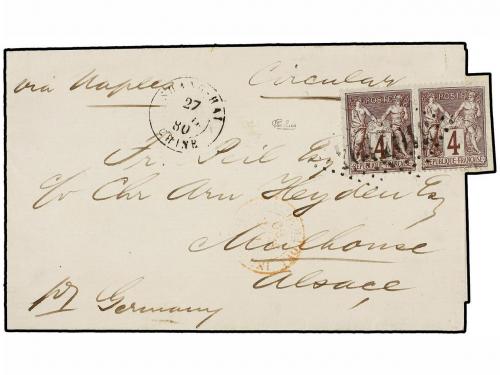 via Naples Circular
SHANG-HAI
27
80
CHINE
POSTES POSTES
4 4
REPUBLIQUE FRANÇAISE REPUBLIQUE FRANÇAISE
Fr. Peil Esq
c/o Chr Arn Heyden Esq
Mulhouse
Alsace
pr Germany